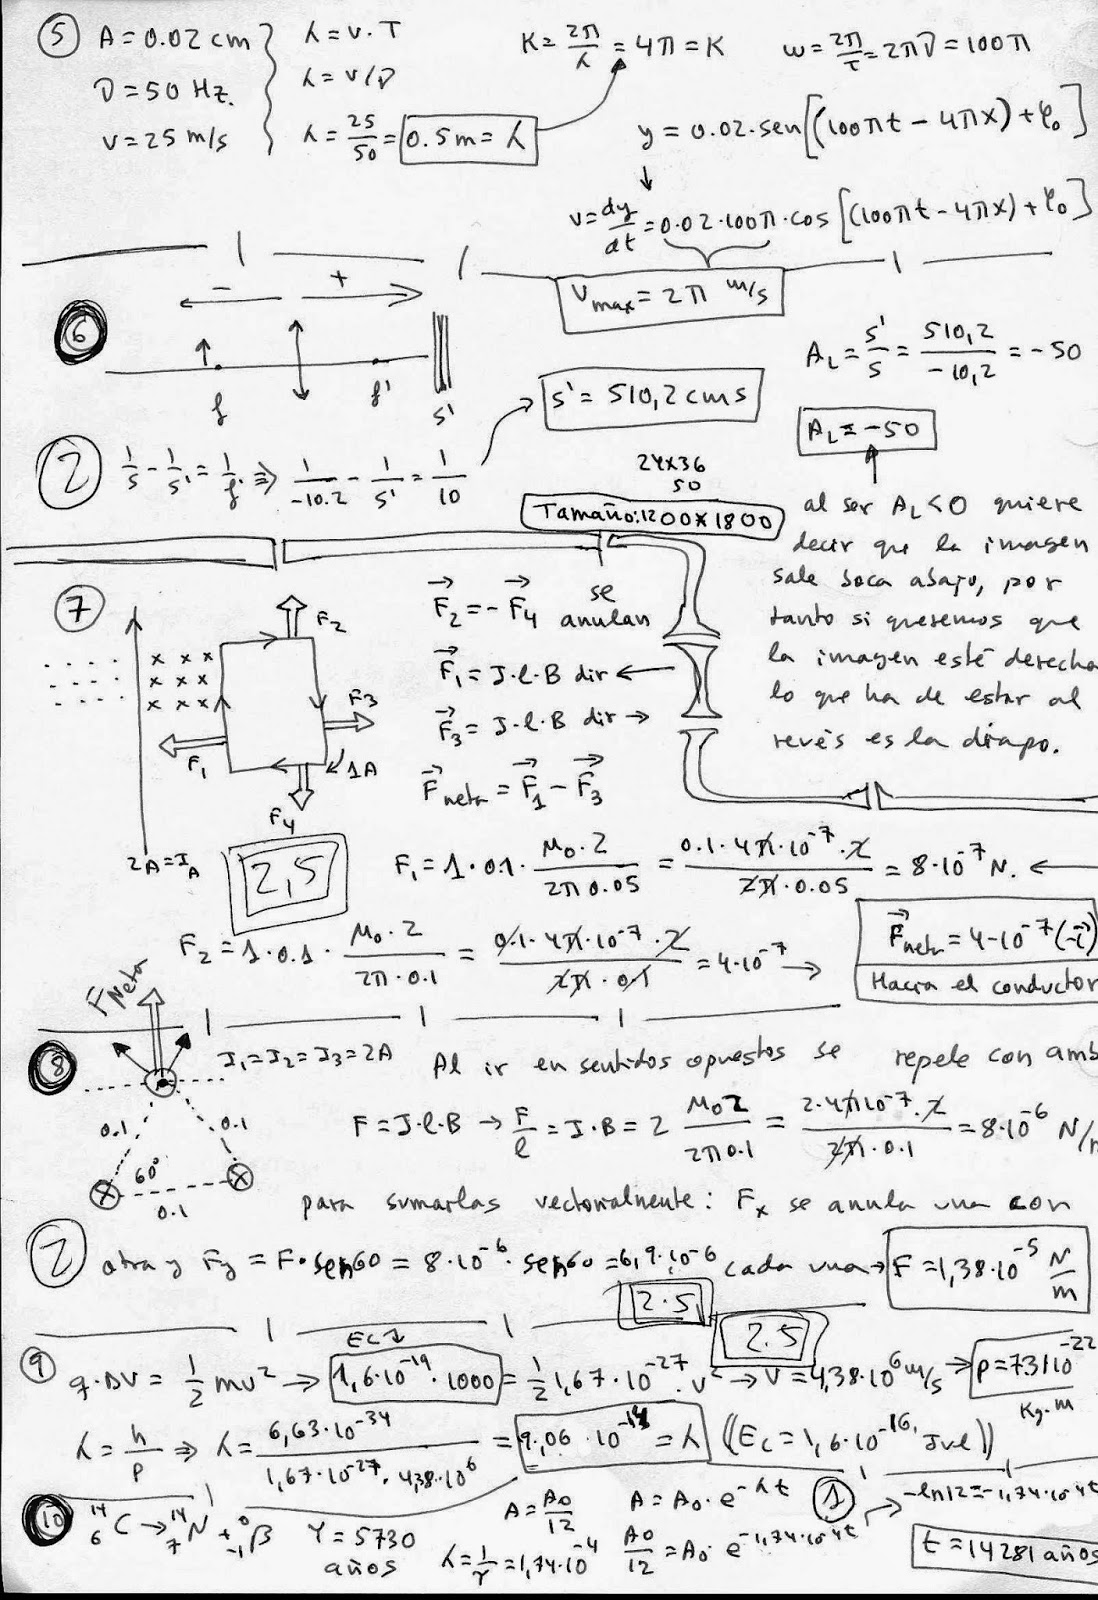 5 A = 0.02 cm
ν = 50 Hz.
v = 25 m/s
λ = v · T
λ = v/ν
λ = 25/50 = 0.5 m = λ
K = 2π/λ = 4π = K
w = 2π/τ = 2πν = 100π
y = 0.02 · sen [(100πt - 4πx) + φ₀]
v = dy/dt = 0.02 · 100π · cos [(100πt - 4πx) + φ₀]
Vmax = 2π m/s
6
- +
f f' s'
2 1/s - 1/s' = 1/f' ⇒ 1/-10.2 - 1/s' = 1/10
s' = 510,2 cms
A_L = s'/s = 510,2/-10,2 = -50
A_L = -50
24x36
50
Tamaño: 1200 x 1800
al ser A_L < 0 quiere
decir que la imagen
sale boca abajo, por
tanto si queremos que
la imagen esté derecha
lo que ha de estar al
revés es la diapo.
7
F₂
x x x
x x x
x x x
F₃
F₁
1A
F₄
2A = I_A
2,5
F⃗₂ = - F⃗₄ se anulan
F⃗₁ = I · l · B dir ←
F⃗₃ = I · l · B dir →
F⃗neta = F⃗₁ - F⃗₃
F₁ = 1 · 0.1 · μ₀ · 2/2π 0.05 = 0.1 · 4π · 10⁻⁷ · 2/2π · 0.05 = 8 · 10⁻⁷ N. ←
F₂ = 1 · 0.1 · μ₀ · 2/2π · 0.1 = 0.1 · 4π · 10⁻⁷ · 2/2π · 0.1 = 4 · 10⁻⁷ →
F⃗neta = 4 · 10⁻⁷ (-i⃗)
Hacia el conductor
8
F Neta
0.1 0.1
60°
0.1
I₁ = I₂ = I₃ = 2A
Al ir en sentidos opuestos se repele con amb
F = I · l · B → F/l = I · B = 2 μ₀ 2/2π 0.1 = 2 · 4π 10⁻⁷ · 2/2π · 0.1 = 8 · 10⁻⁶ N/m
para sumarlas vectorialmente: Fx se anula una con
2 otra y Fy = F · sen 60 = 8 · 10⁻⁶ · sen 60 = 6,9 · 10⁻⁶ cada una → F = 1,38 · 10⁻⁵ N/m
2.5
2.5
9 Ec ↓
q · ΔV = 1/2 mv² → 1,6 · 10⁻¹⁹ · 1000 = 1/2 1,67 · 10⁻²⁷ · v² → v = 4,38 · 10⁶ m/s → p = 7.31 10⁻²²
Kg · m
λ = h/p ⇒ λ = 6,63 · 10⁻³⁴/1,67 · 10⁻²⁷ · 4,38 · 10⁶ = 9,06 · 10⁻¹⁴ = λ ((Ec = 1,6 · 10⁻¹⁶ Jul))
10 ¹⁴₆C → ¹⁴₇N + ⁰₋₁β
τ = 5730 años
A = A₀/12
λ = 1/τ = 1,74 · 10⁻⁴
A = A₀ · e^-λt
A₀/12 = A₀ · e^-1,74 · 10⁻⁴t
1
-ln 12 = -1,74 · 10⁻⁴t
t = 14281 años